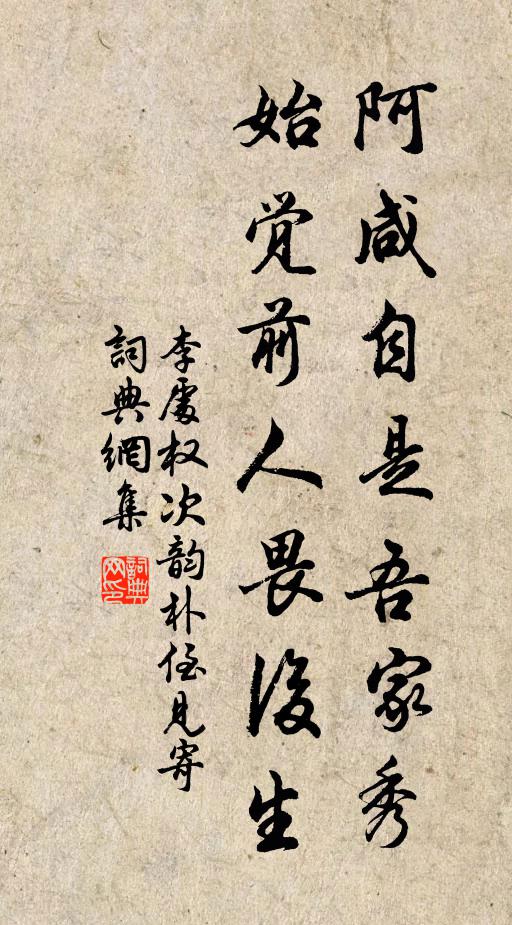 阿咸自是吾家秀
始觉前人畏後生
李處权次韵朴侄見寄
詞典網集
詞典网印